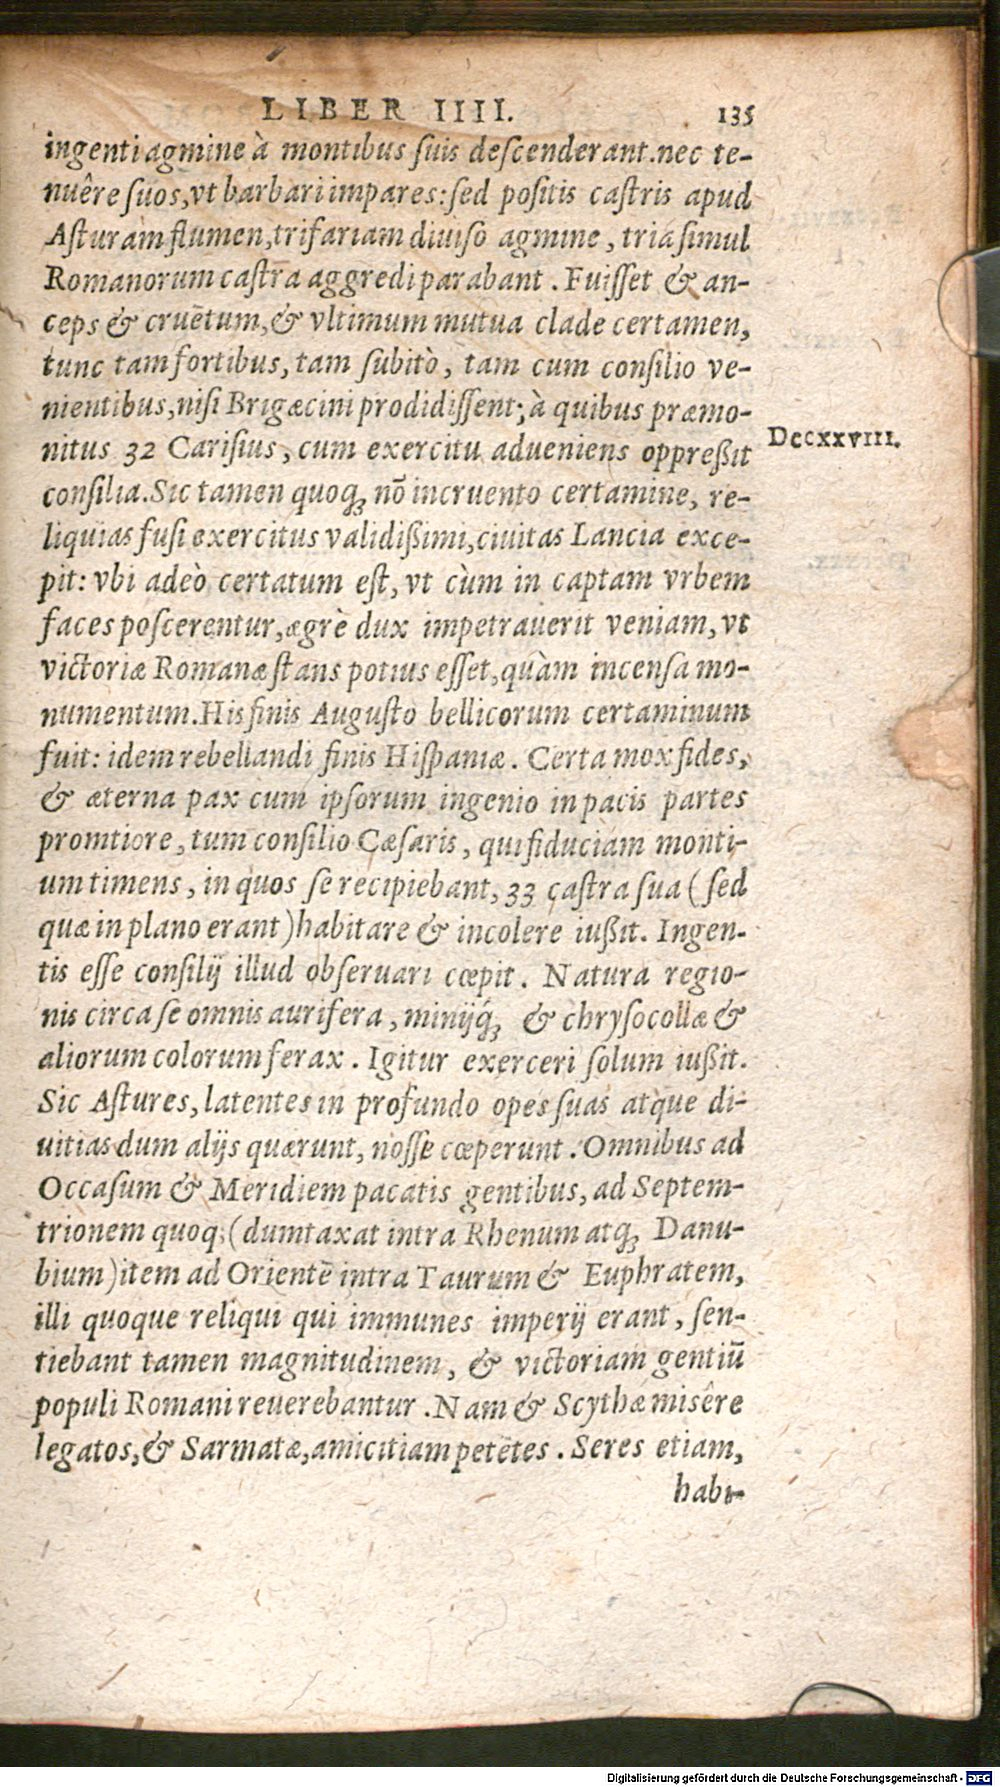 LIBER IIII. 135
ingenti agmine à montibus suis descenderant. nec te-
nuêre suos, vt barbari impares: sed positis castris apud
Asturam flumen, trifariam diuiso agmine, tria simul
Romanorum castra aggredi parabant. Fuisset & an-
ceps & cruētum, & vltimum mutua clade certamen,
tunc tam fortibus, tam subitò, tam cum consilio ve-
nientibus, nisi Brigæcini prodidissent; à quibus præmo-
nitus 32 Carisius, cum exercitu adueniens oppreßit
Dccxxviii.
consilia. Sic tamen quoq; nō incruento certamine, re-
liquias fusi exercitus validißimi, ciuitas Lancia exce-
pit: vbi adeò certatum est, vt cùm in captam vrbem
faces poscerentur, ægrè dux impetrauerit veniam, vt
victoriæ Romanæ stans potius esset, quàm incensa mo-
numentum. His finis Augusto bellicorum certaminum
fuit: idem rebellandi finis Hispaniæ. Certa mox fides,
& æterna pax cum ipsorum ingenio in pacis partes
promtiore, tum consilio Cæsaris, qui fiduciam monti-
um timens, in quos se recipiebant, 33 castra sua (sed
quæ in plano erant) habitare & incolere iußit. Ingen-
tis esse consilij illud obseruari cœpit. Natura regio-
nis circa se omnis aurifera, minijq́; & chrysocollæ &
aliorum colorum ferax. Igitur exerceri solum iußit.
Sic Astures, latentes in profundo opes suas atque di-
uitias dum alijs quærunt, nosse cœperunt. Omnibus ad
Occasum & Meridiem pacatis gentibus, ad Septem-
trionem quoq; (dumtaxat intra Rhenum atq; Danu-
bium) item ad Orientē intra Taurum & Euphratem,
illi quoque reliqui qui immunes imperij erant, sen-
tiebant tamen magnitudinem, & victoriam gentiū
populi Romani reuerebantur. Nam & Scythæ misêre
legatos, & Sarmatæ, amicitiam petētes. Seres etiam,
habi-
Digitalisierung gefördert durch die Deutsche Forschungsgemeinschaft - DFG